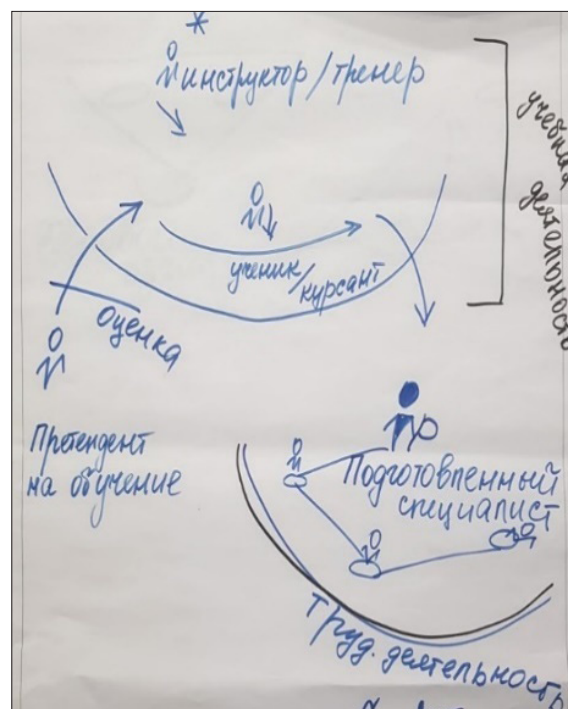 *
инструктор/тренер
учебная
деятельность
ученик/
курсант
оценка
Претендент
на обучение
Подготовленный
специалист
труд. деятельность